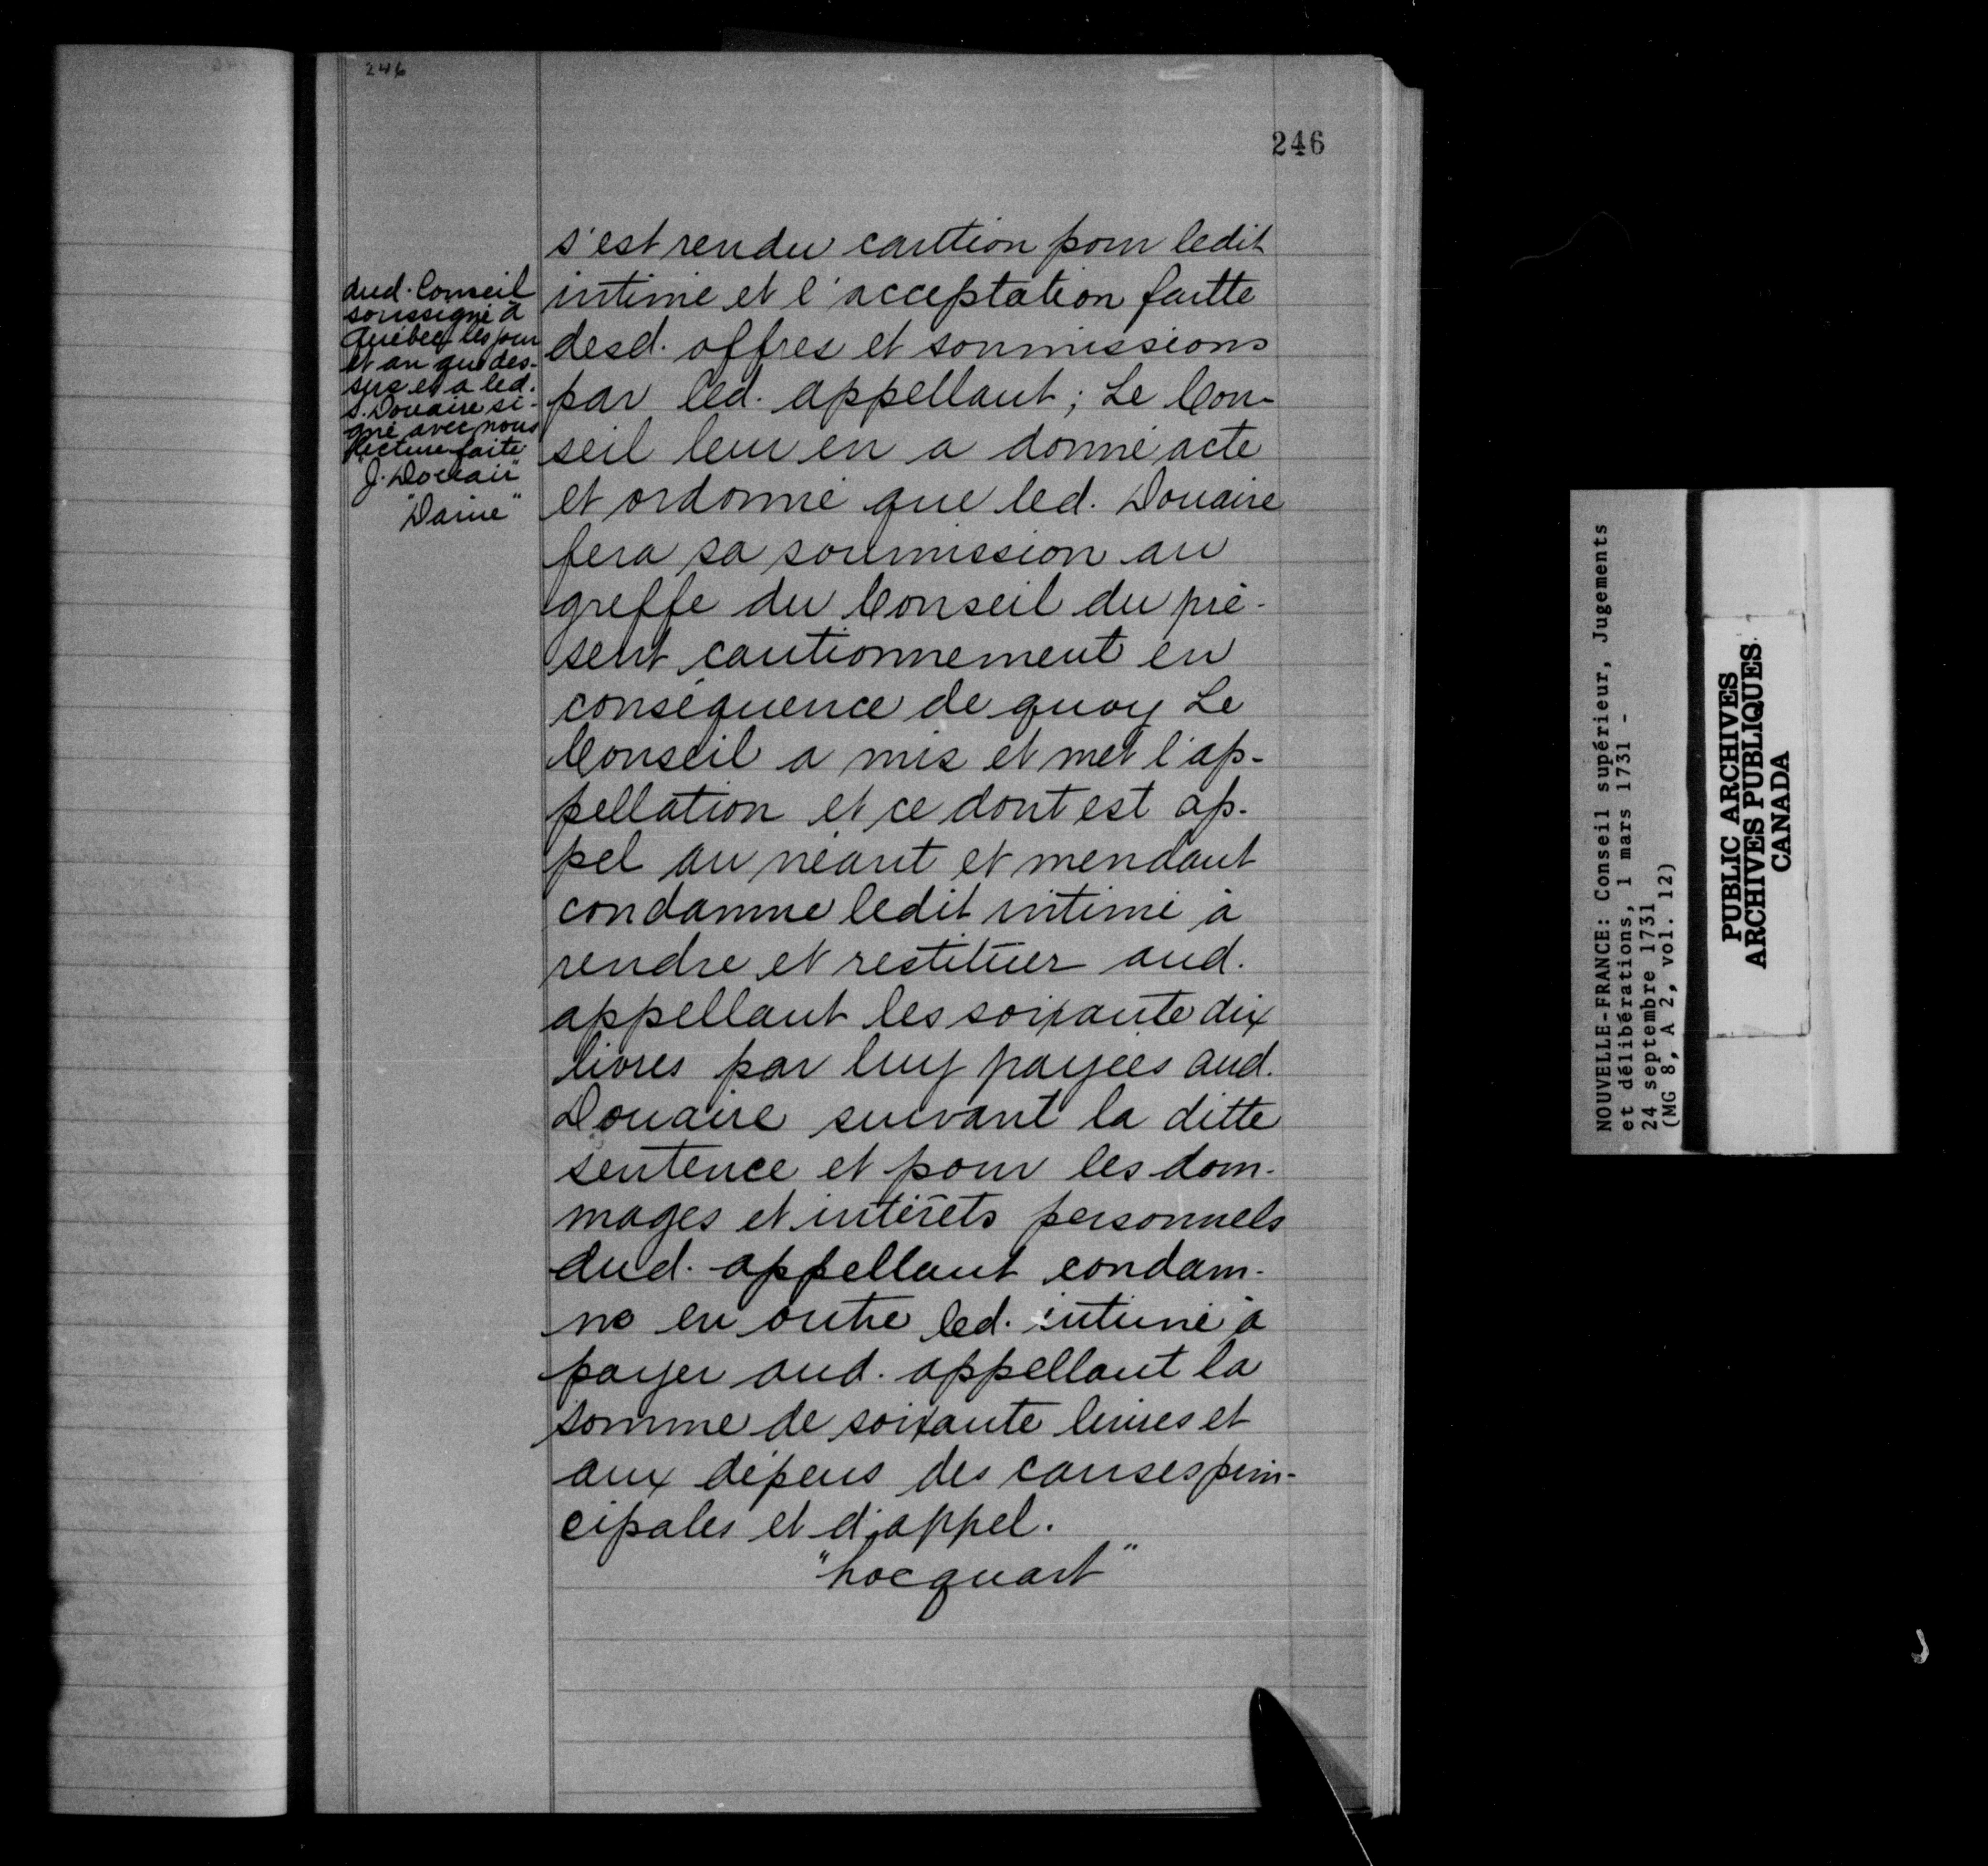 246
246
dud. Conseil
soussigné à
Québec les jour
et an que des-
sus et a led.
S. Douaire si-
gné avec nous
lecture faite
"J. Douair"
"Daine"
s'est rendu caution pour ledit
intimé et l'acceptation faitte
desd. offres et soumissions
par led. appellant; Le Con-
seil leur en a donné acte
et ordonné que led. Douaire
fera sa soumission au
greffe du Conseil du pré-
sent cautionnement en
conséquence de quoy Le
Conseil a mis et met l'ap-
pellation et ce dont est ap-
pel au néant et mendant
condamne ledit intimé à
rendre et restituer aud.
appellant les soixante dix
livres par luy payées aud.
Douaire suivant la ditte
sentence et pour les dom-
mages et intérêts personnels
dud. appellant condam-
ne en outre led. intimé à
payer aud. appellant la
somme de soixante livres et
aux dépens des causes prin-
cipales et d'appel.
"hocquart"
NOUVELLE-FRANCE: Conseil supérieur, Jugements
et délibérations, 1 mars 1731 -
24 septembre 1731
(MG 8, A 2, vol. 12)
PUBLIC ARCHIVES
ARCHIVES PUBLIQUES
CANADA